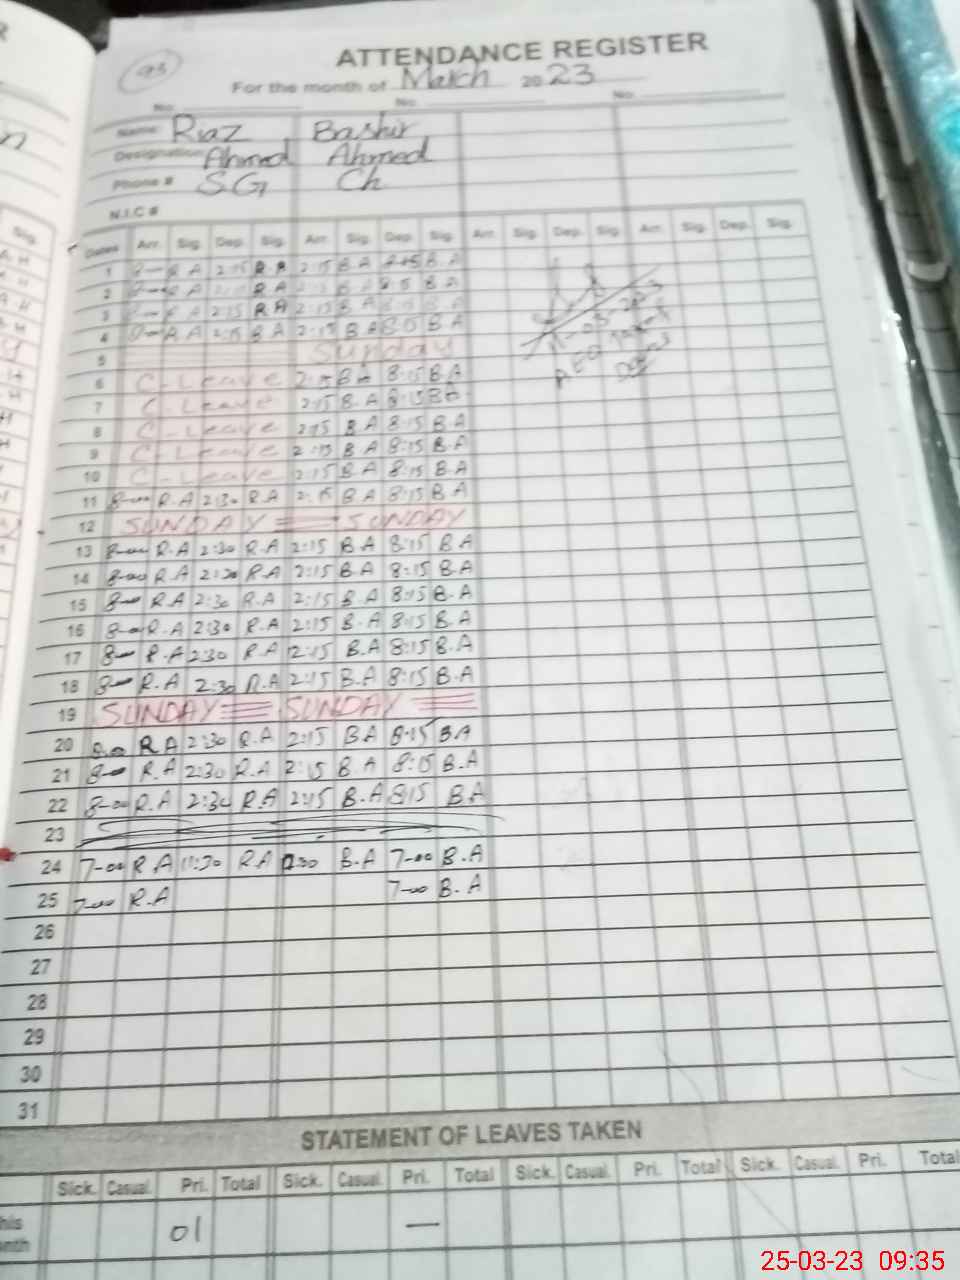 93
ATTENDANCE REGISTER
For the month of March 2023
No. No. No.
Name Riaz Bashir
Designation Ahmed Ahmed
Phone # SG Ch
N.I.C #
Dates Arr. Sig. Dep. Sig. Arr. Sig. Dep. Sig. Arr. Sig. Dep. Sig. Arr. Sig. Dep. Sig.
1 8-00 R.A 2:15 R.A 2:15 B.A B.A
2 R.A R.A B.A B.A
3 R.A 2:15 R.A 2:15 B.A B.A
4 8-00 R.A 2:15 2:15 B.A B.A
5 Sunday
6 C-Leave 2:15 B.A 8:15 B.A
7 C-Leave 2:15 B.A 8:15 B.A
8 C-Leave 2:15 B.A 8:15 B.A
9 C-Leave 2:15 B.A 8:15 B.A
10 C-Leave 2:15 B.A 8:15 B.A
11 8-00 R.A 2:30 R.A 2:15 B.A 8:15 B.A
12 SUNDAY SUNDAY
13 8-00 R.A 2:30 R.A 2:15 B.A 8:15 B.A
14 8-00 R.A 2:30 R.A 2:15 B.A 8:15 B.A
15 8-00 R.A 2:30 R.A 2:15 B.A 8:15 B.A
16 8-00 R.A 2:30 R.A 2:15 B.A 8:15 B.A
17 8-00 R.A 2:30 R.A 2:15 B.A 8:15 B.A
18 8-00 R.A 2:30 R.A 2:15 B.A 8:15 B.A
19 SUNDAY SUNDAY
20 8-00 R.A 2:30 R.A 2:15 B.A 8:15 B.A
21 8-00 R.A 2:30 R.A 2:15 B.A 8:15 B.A
22 8-00 R.A 2:30 R.A 2:15 B.A 8:15 B.A
23
24 7-00 R.A 11:30 R.A B.A 7-00 B.A
25 7-00 R.A 7-00 B.A
26
27
28
29
30
31
11-03-2023
AEO
STATEMENT OF LEAVES TAKEN
Sick. Casual. Pri. Total Sick. Casual. Pri. Total Sick. Casual. Pri. Total Sick. Casual. Pri. Total
01 —
25-03-23 09:35